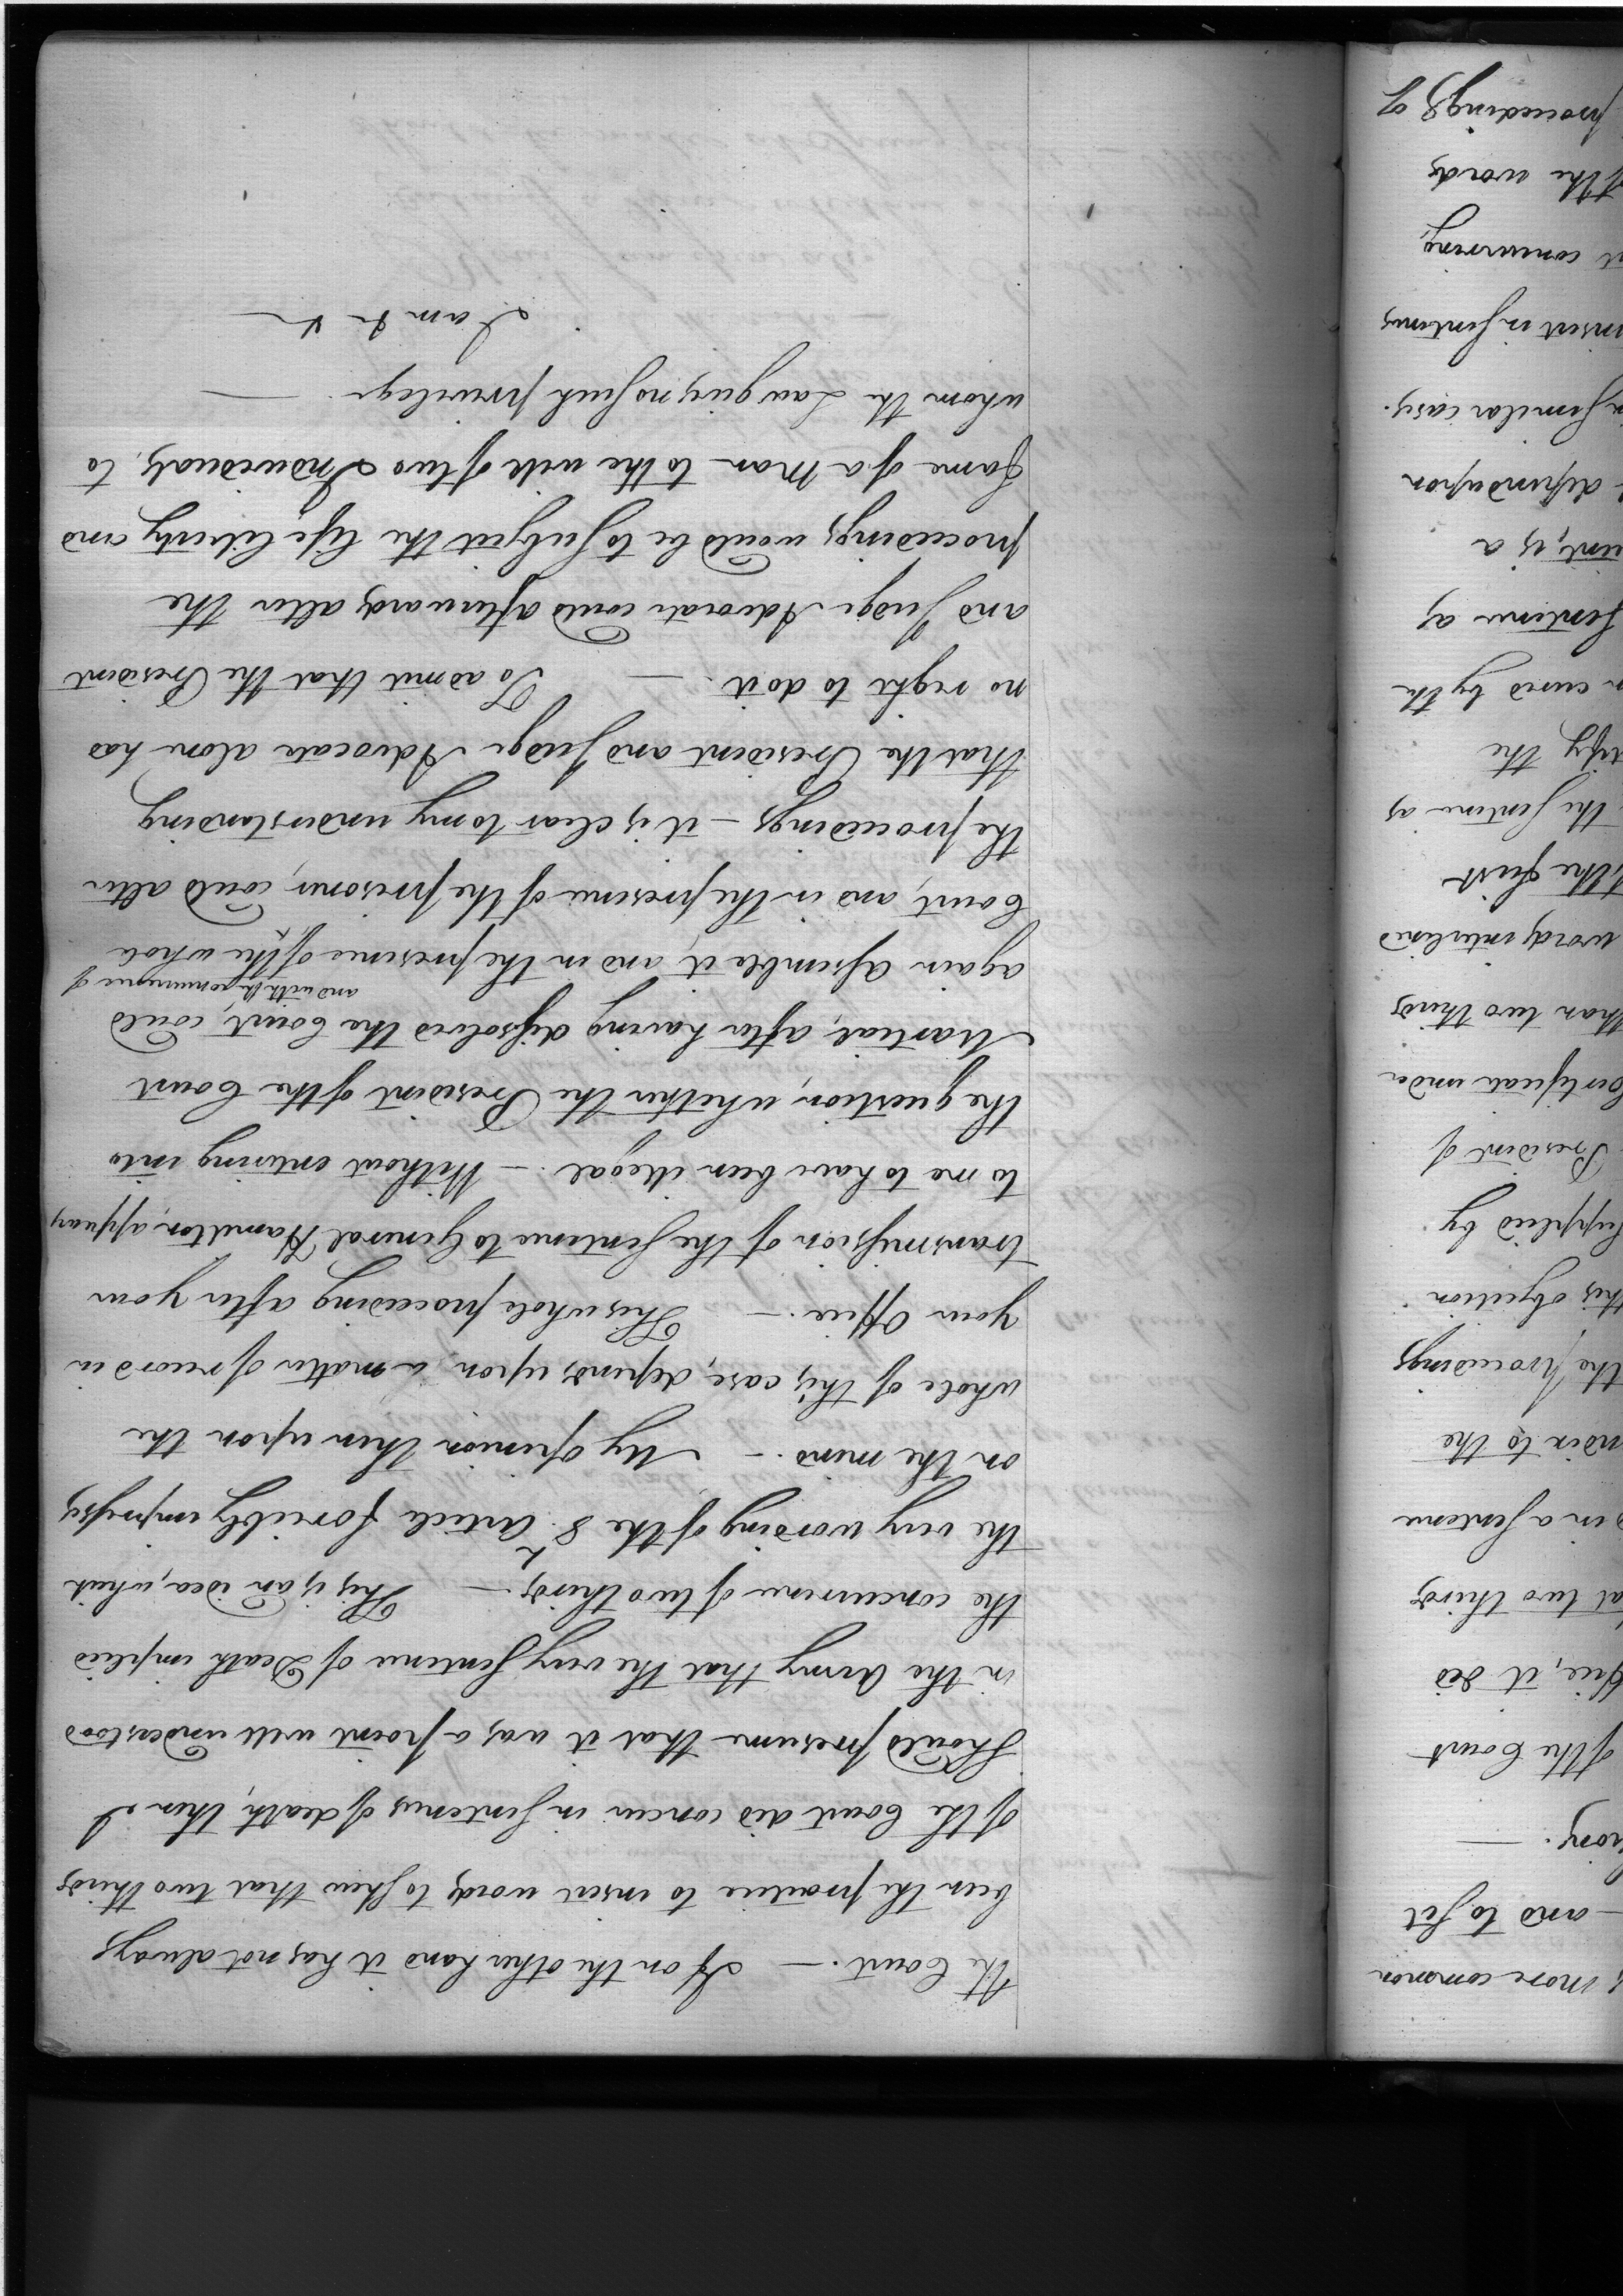 the Court. — If on the other hand it has not always
been the practice to insert words to shew that two thirds
of the Court did concur in sentences of death, then I
should presume that it was a point well understood
in the Army that the very sentence of Death implied
the concurrence of two thirds. — This is an idea, which
the very wording of the 8.th Article forcibly impresses
on the mind. — My opinion then upon the
whole of this case, depends upon a matter of record in
your Office. — This whole proceeding after your
transmission of the sentence to General Hamilton, appears
to me to have been illegal. — Without entering into
the question, whether the President of the Court
Martial, after having dissolved the Court, could
again assemble it, and in the presence of and with the concurrence of the whole
Court, and in the presence of the prisoner, could alter
the proceedings — it is clear to my understanding
that the President and Judge Advocate alone had
no right to do it. — To admit that the President
and Judge Advocate could afterwards alter the
proceedings would be to subject the life liberty and
fame of a Man to the will of two Individuals, to
whom the Law gives no such privilege. —
I am &c &c
more common
— and to set
of the Court
, it did
at two thirds
d in a sentence
to the
the proceedings
this objection
supplied by
President of
Certificate under
than two thirds
words interlined
, the first
the sentence as
the
cured by the
sentence as
is a
depend upon
similar cases.
insert in sentences
concurring,
of the words
proceedings of